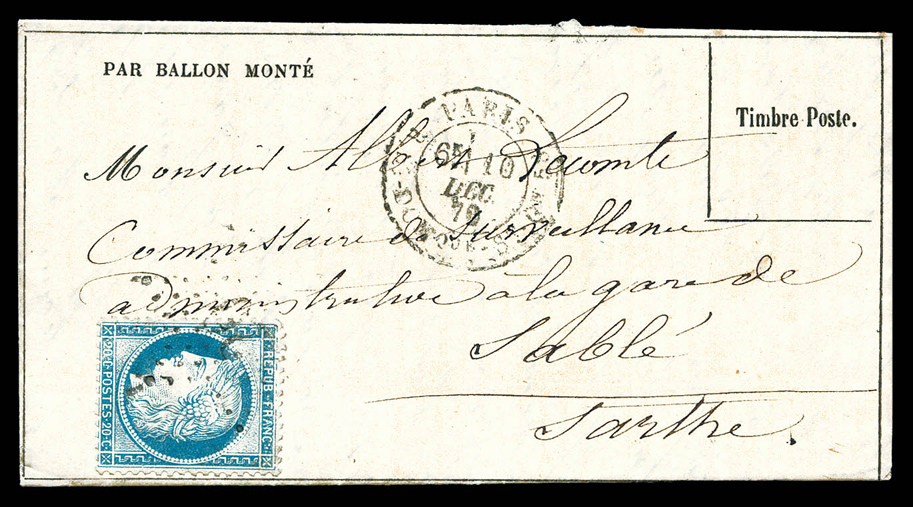 PAR BALLON MONTÉ
Timbre Poste.
PARIS
6E 10
DEC.
70
Monsieur Albert Lecomte
Commissaire de Surveillance
administrative à la gare de
Sablé
Sarthe.
REPUB. FRANC.
20 C POSTES 20 C